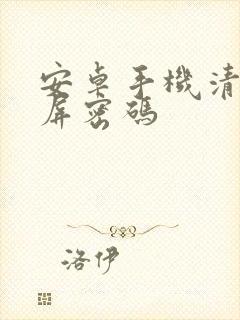 安卓手機清
屏密碼
洛伊